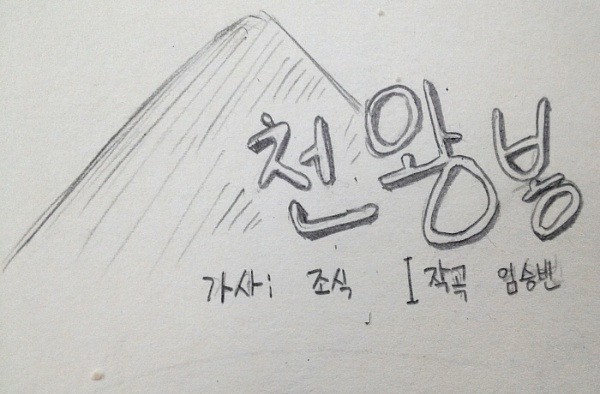 천왕봉
가사: 조식 I 작곡 임승빈